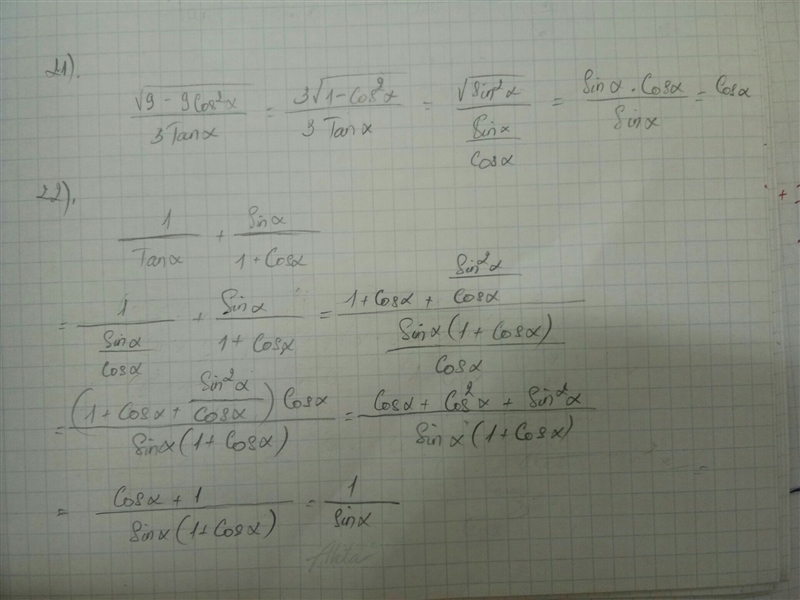 21).
√(9 - 9Cos²α) / 3Tanα = 3√(1 - Cos²α) / 3Tanα = √(Sin²α) / (Sinα / Cosα) = Sinα · Cosα / Sinα = Cosα
22).
1 / Tanα + Sinα / (1 + Cosα)
= 1 / (Sinα / Cosα) + Sinα / (1 + Cosα) = (1 + Cosα + Sin²α / Cosα) / (Sinα(1 + Cosα) / Cosα)
= (1 + Cosα + Sin²α / Cosα) Cosα / Sinα(1 + Cosα) = (Cosα + Cos²α + Sin²α) / Sinα(1 + Cosα)
= (Cosα + 1) / Sinα(1 + Cosα) = 1 / Sinα